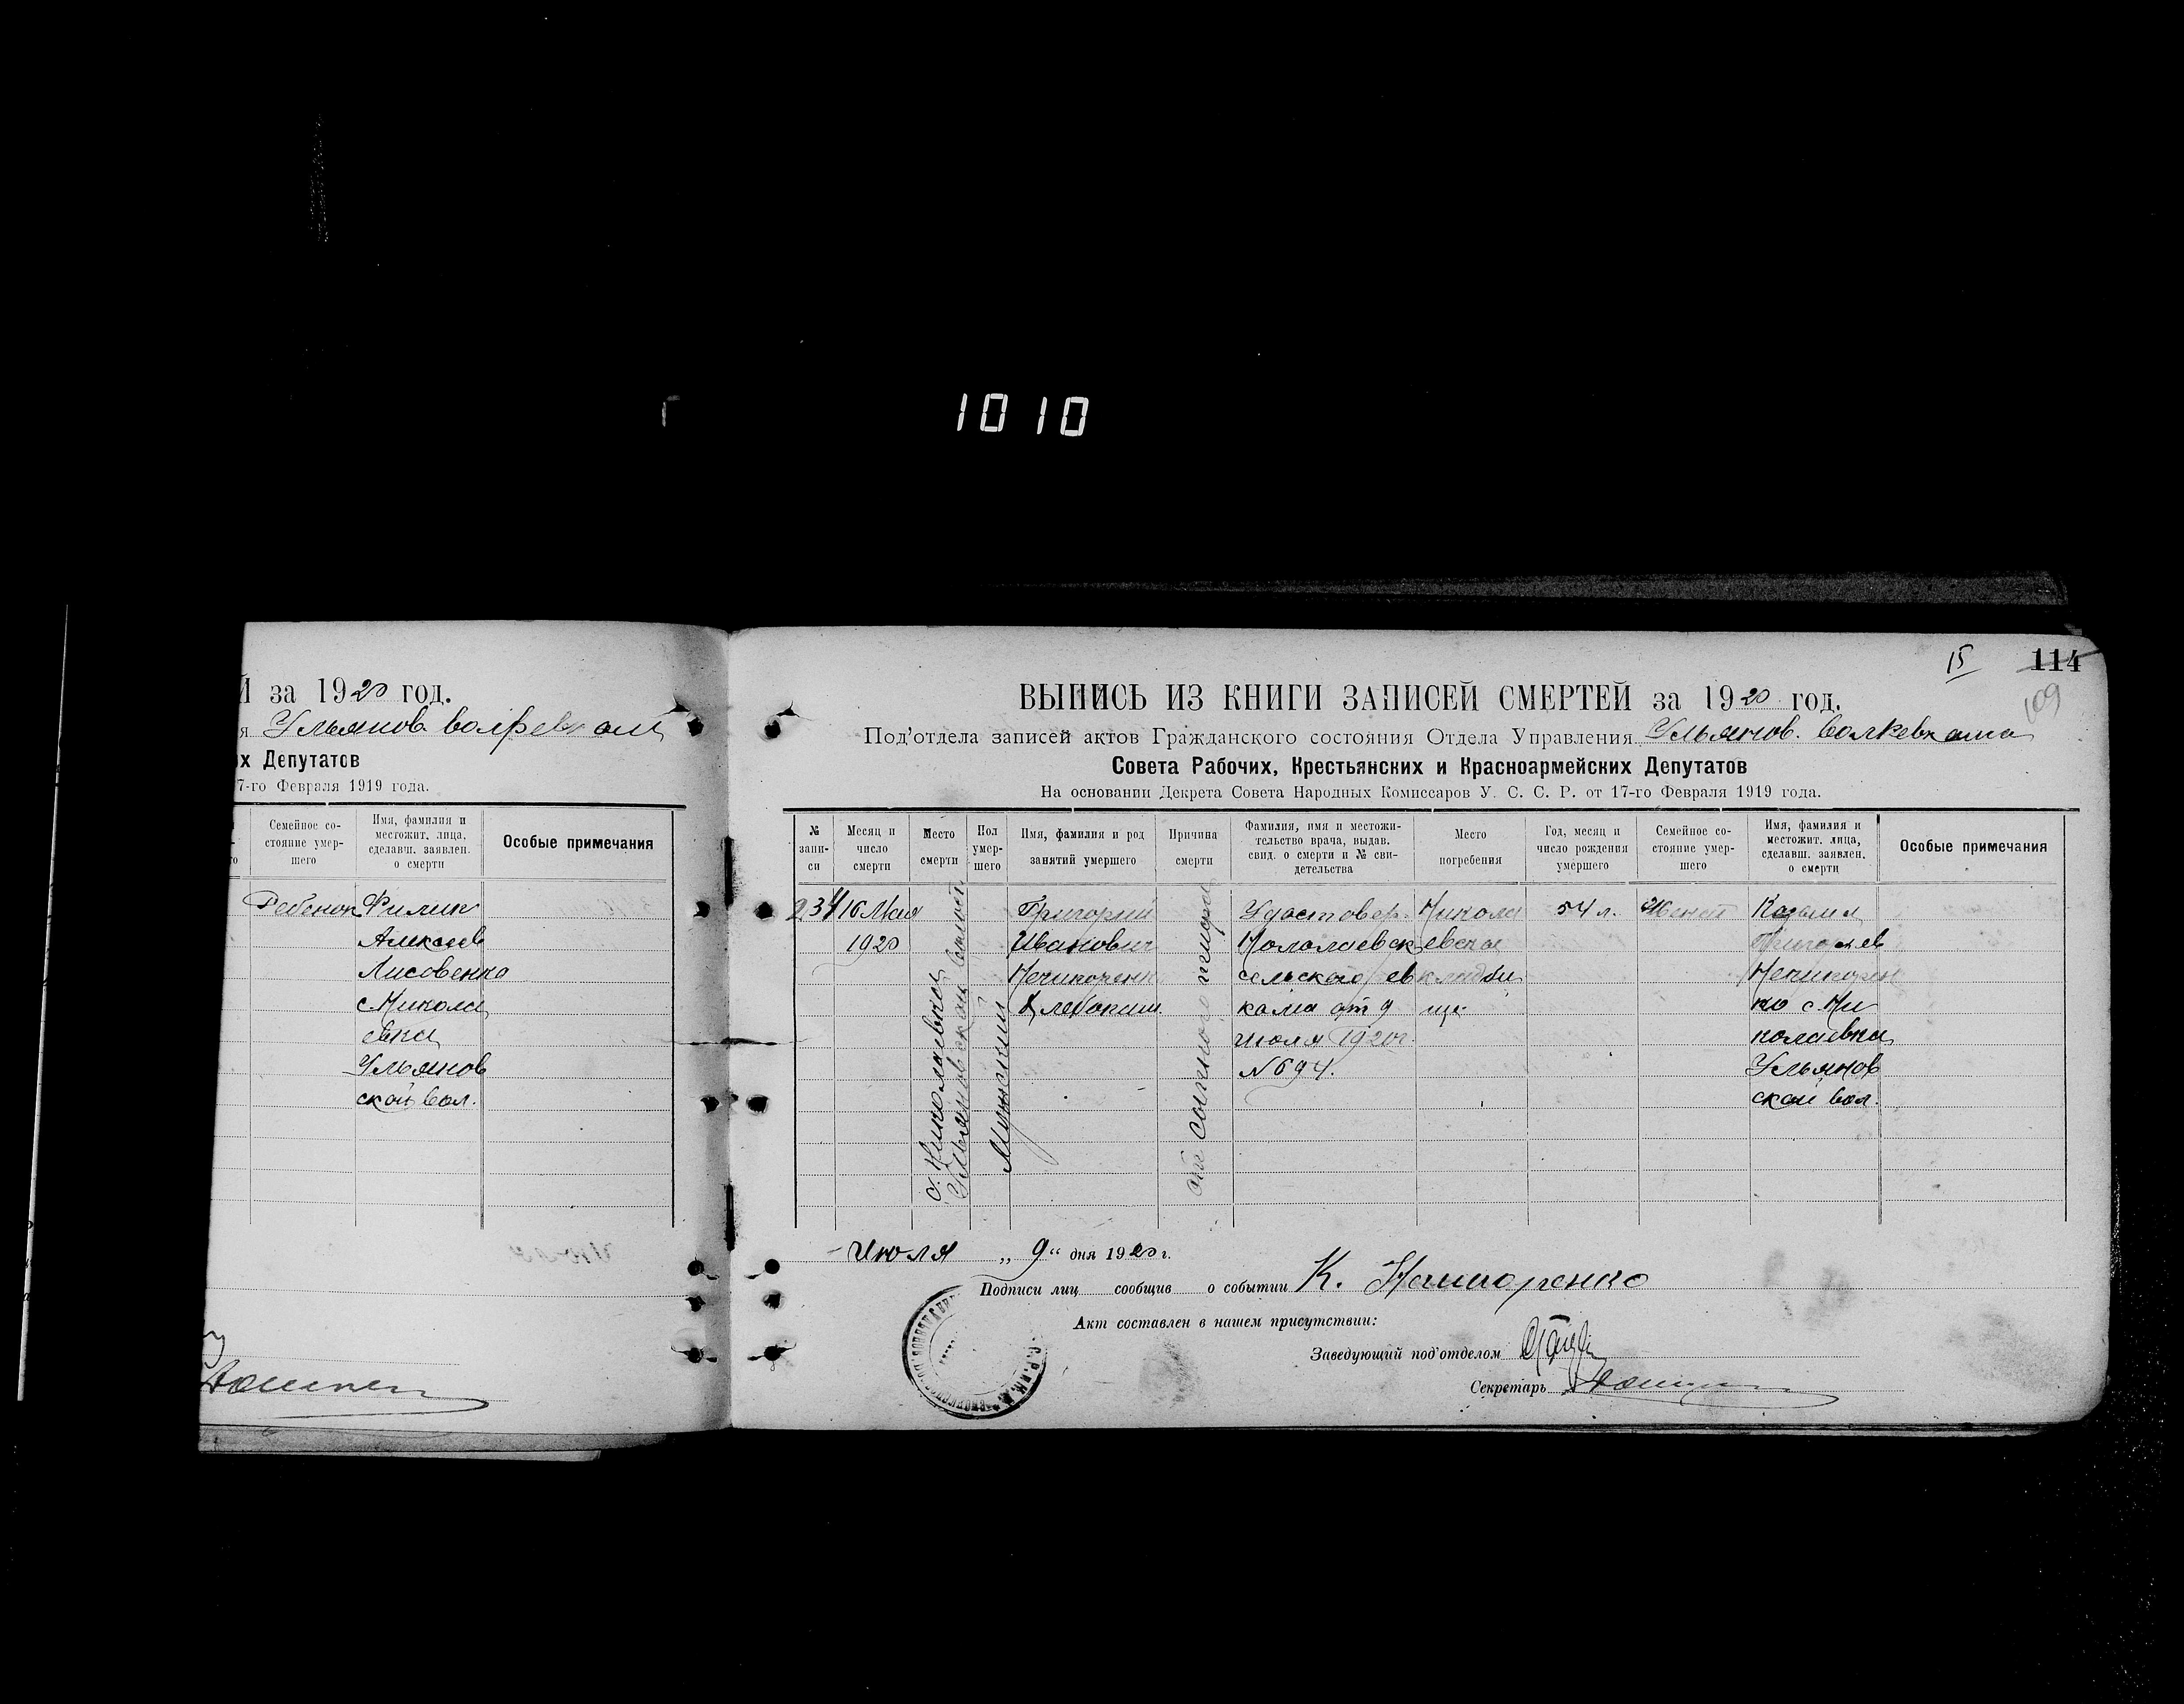 1010
Й за 1920 год.
я Ульянов волревком
х Депутатов
7-го Февраля 1919 года.
Семейное со-
стояние умер-
шего
Имя, фамилия и
местожит. лица,
сделавш. заявлен.
о смерти
Особые примечания
Ребенок
Филип
Алексеев
Лисовенко
с Никола
евка
Ульянов
ской вол.
15
114
109
ВЫПИСЬ ИЗ КНИГИ ЗАПИСЕЙ СМЕРТЕЙ за 1920 год.
Под'отдела записей актов Гражданского состояния Отдела Управления Ульянов.
Совета Рабочих, Крестьянских и Красноармейских Депутатов
На основании Декрета Совета Народных Комиссаров У. С. С. Р. от 17-го Февраля 1919 года.
№
запи-
си
Месяц и
число
смерти
Место
смерти
Пол
умер-
шего
Имя, фамилия и род
занятий умершего
Причина
смерти
Фамилия, имя и местожи-
тельство врача, выдав.
свид. о смерти и № сви-
детельства
Место
погребения
Год, месяц и
число рождения
умершего
Семейное со-
стояние умер-
шего
Имя, фамилия и
местожит. лица,
сделавш. заявлен.
о смерти
Особые примечания
234
16 Мая
1920
с. Николаевка
Ульяновской волости
Мужский
Григорий
Иванович
Нечипоренк
Хлебопаш.
от сыпного тифа
Удостовер.
сельского рев
кома от 9
июля 1920г.
№694.
Никола
евское
кладби
ще
54 л.
Женат
Козьма
Григорьев
Нечипорен
ко с. Ни
колаевка
Ульянов
ской вол.
Июля „9“ дня 1920 г.
Подписи лиц сообщив о событии К.
Акт составлен в нашем присутствии:
Заведующий под'отделом
Секретарь